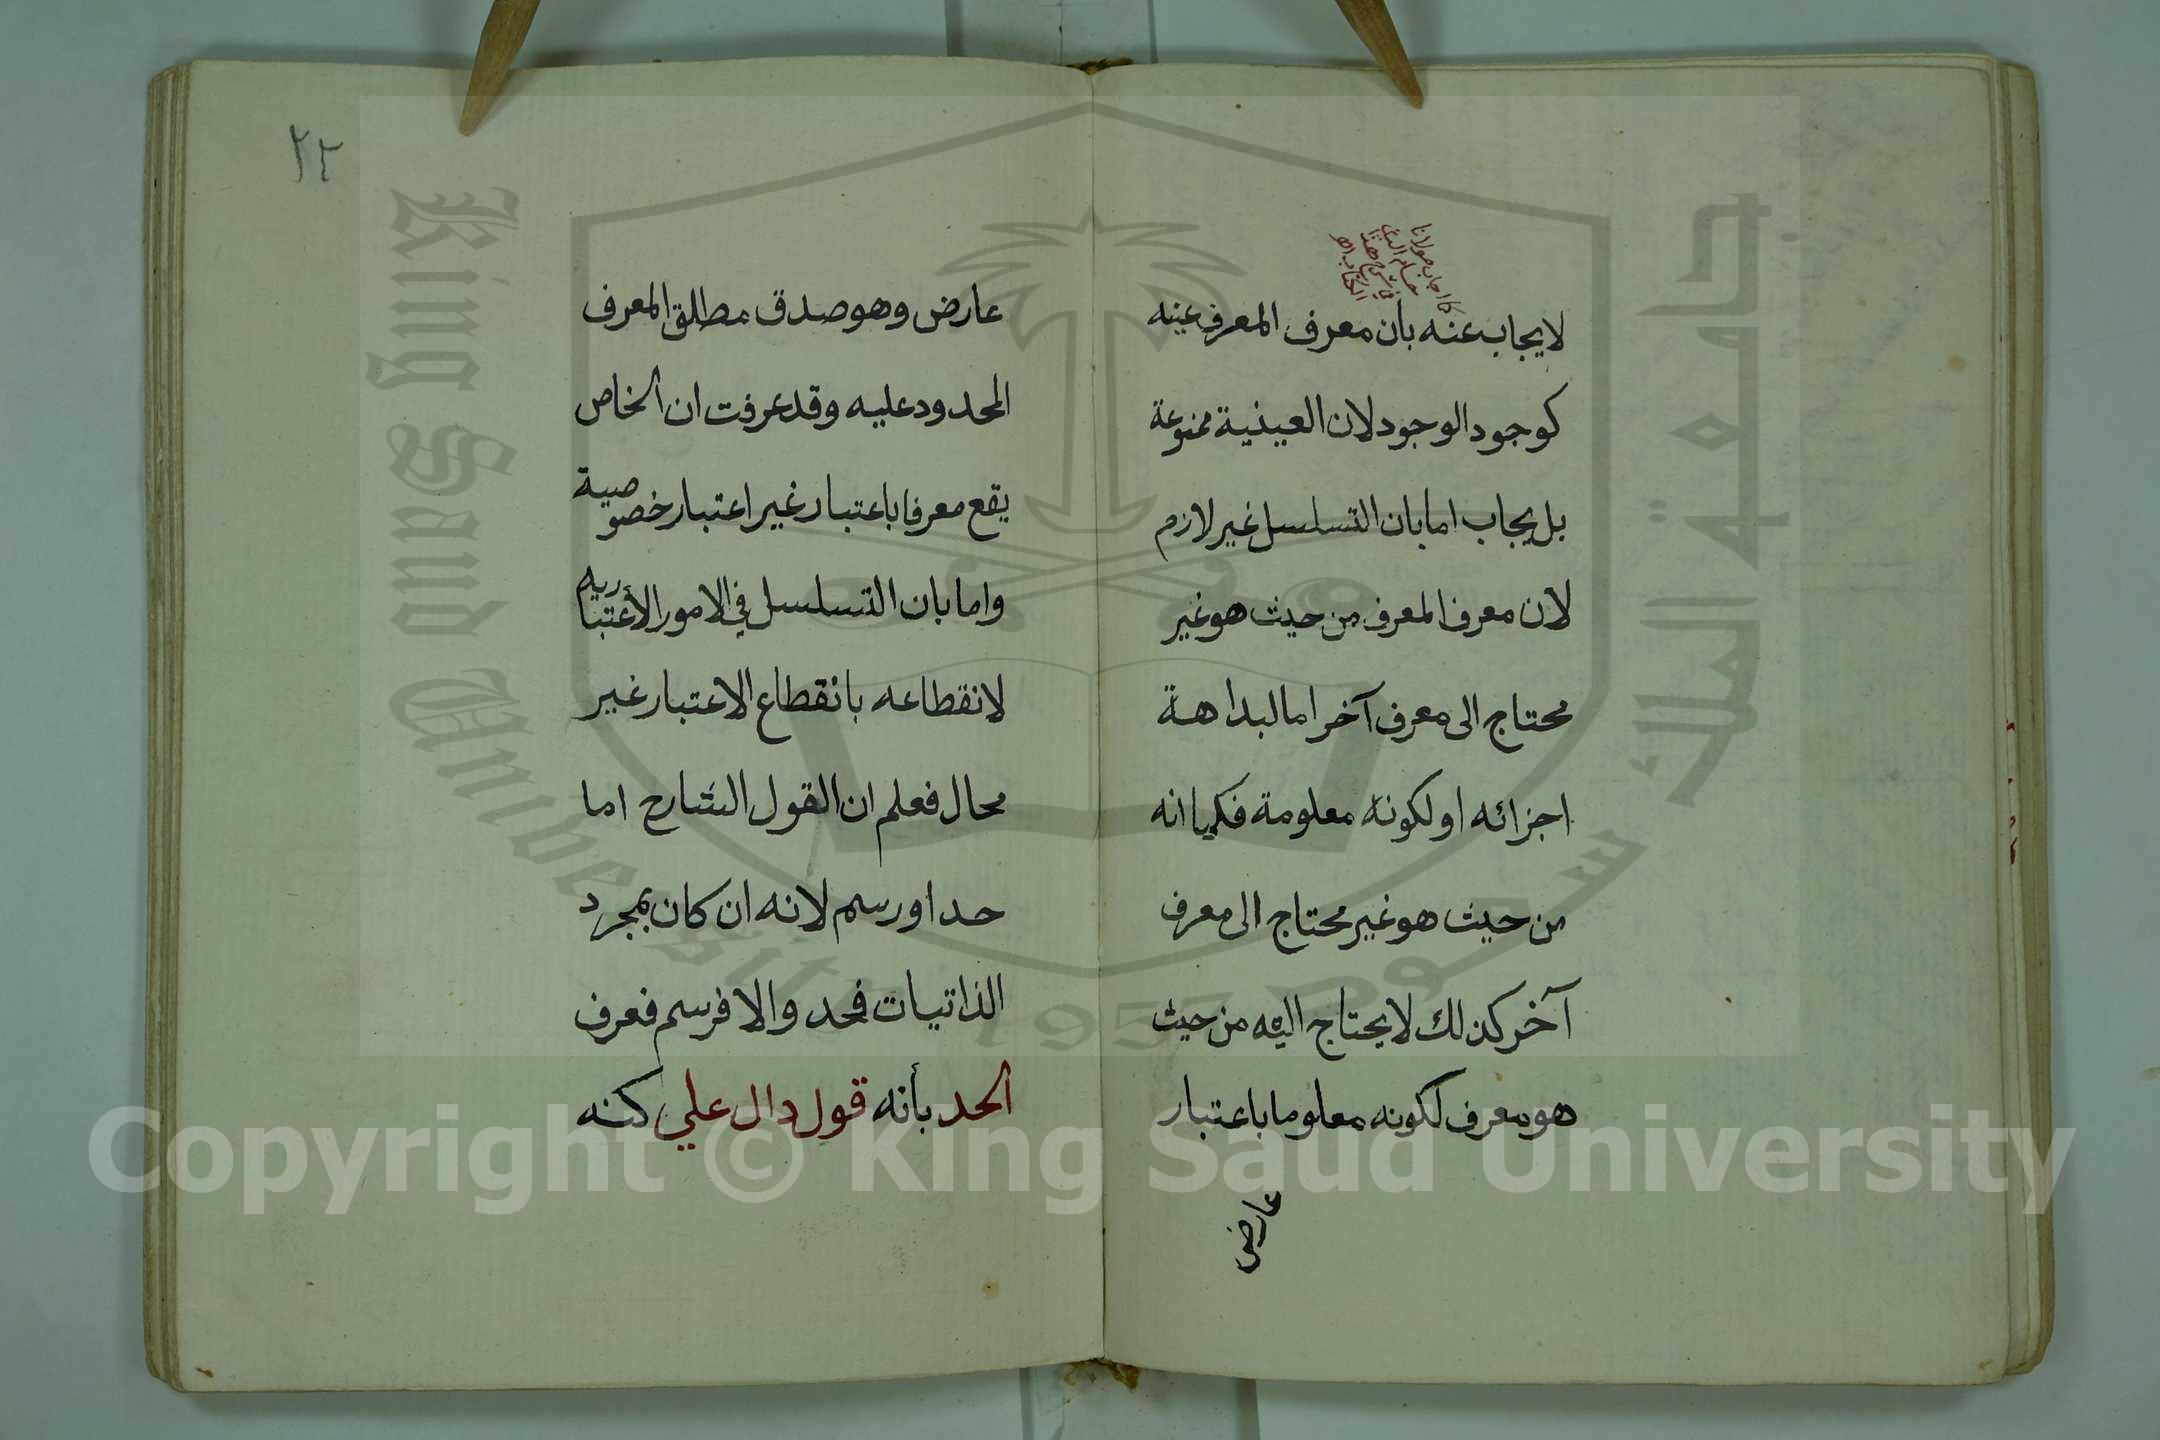 كما اجاب مولانا
حسام الدين
في شرح هذا
الكتاب اهـ
لا يجاب عنه بأن معرف المعرف عينه
كوجود الوجود لان العينية ممنوعة
بل يجاب اما بان التسلسل غير لازم
لان معرف المعرف من حيث هو غير
محتاج الى معرف آخر اما لبداهة
اجزائه او لكونه معلومة فكما انه
من حيث هو غير محتاج الى معرف
آخر كذلك لا يحتاج اليه من حيث
هو معرف لكونه معلوما باعتبار
عارض
٢٢
عارض وهو صدق مطلق المعرف
المحدود عليه وقد عرفت ان الخاص
يقع معرفا باعتبار غير اعتبار خصوصية
واما بان التسلسل في الامور الأعتباريه
لانقطاعه بانقطاع الاعتبار غير
محال فعلم ان القول الشارح اما
حد او رسم لانه ان كان بمجرد
الذاتيات فحد والا فرسم فعرف
الحد بأنه قول دال علي كنه
جامعة الملك سعود
King Saud University
1957
Copyright © King Saud University